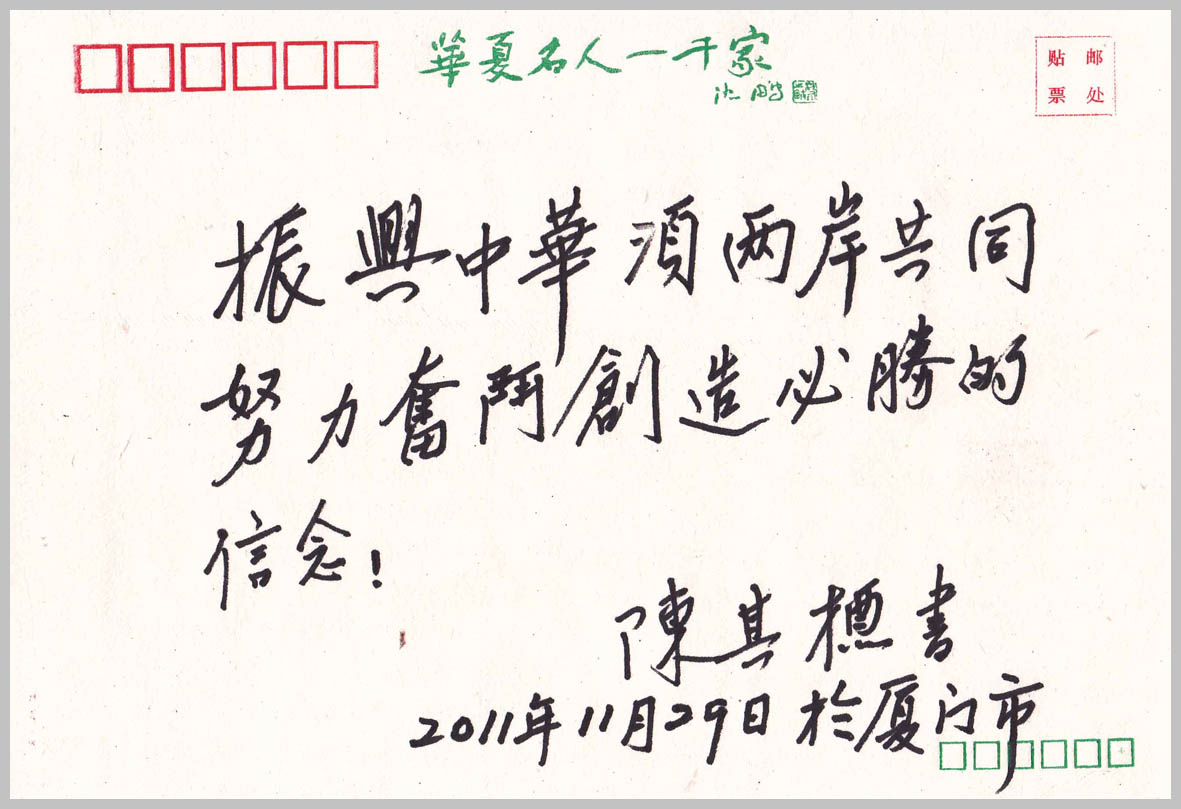 華夏名人一千家
沈鹏
贴 邮
票 处
振興中華須两岸共同
努力奮鬥創造必勝的
信念!
陳其標書
2011年11月29日於厦门市